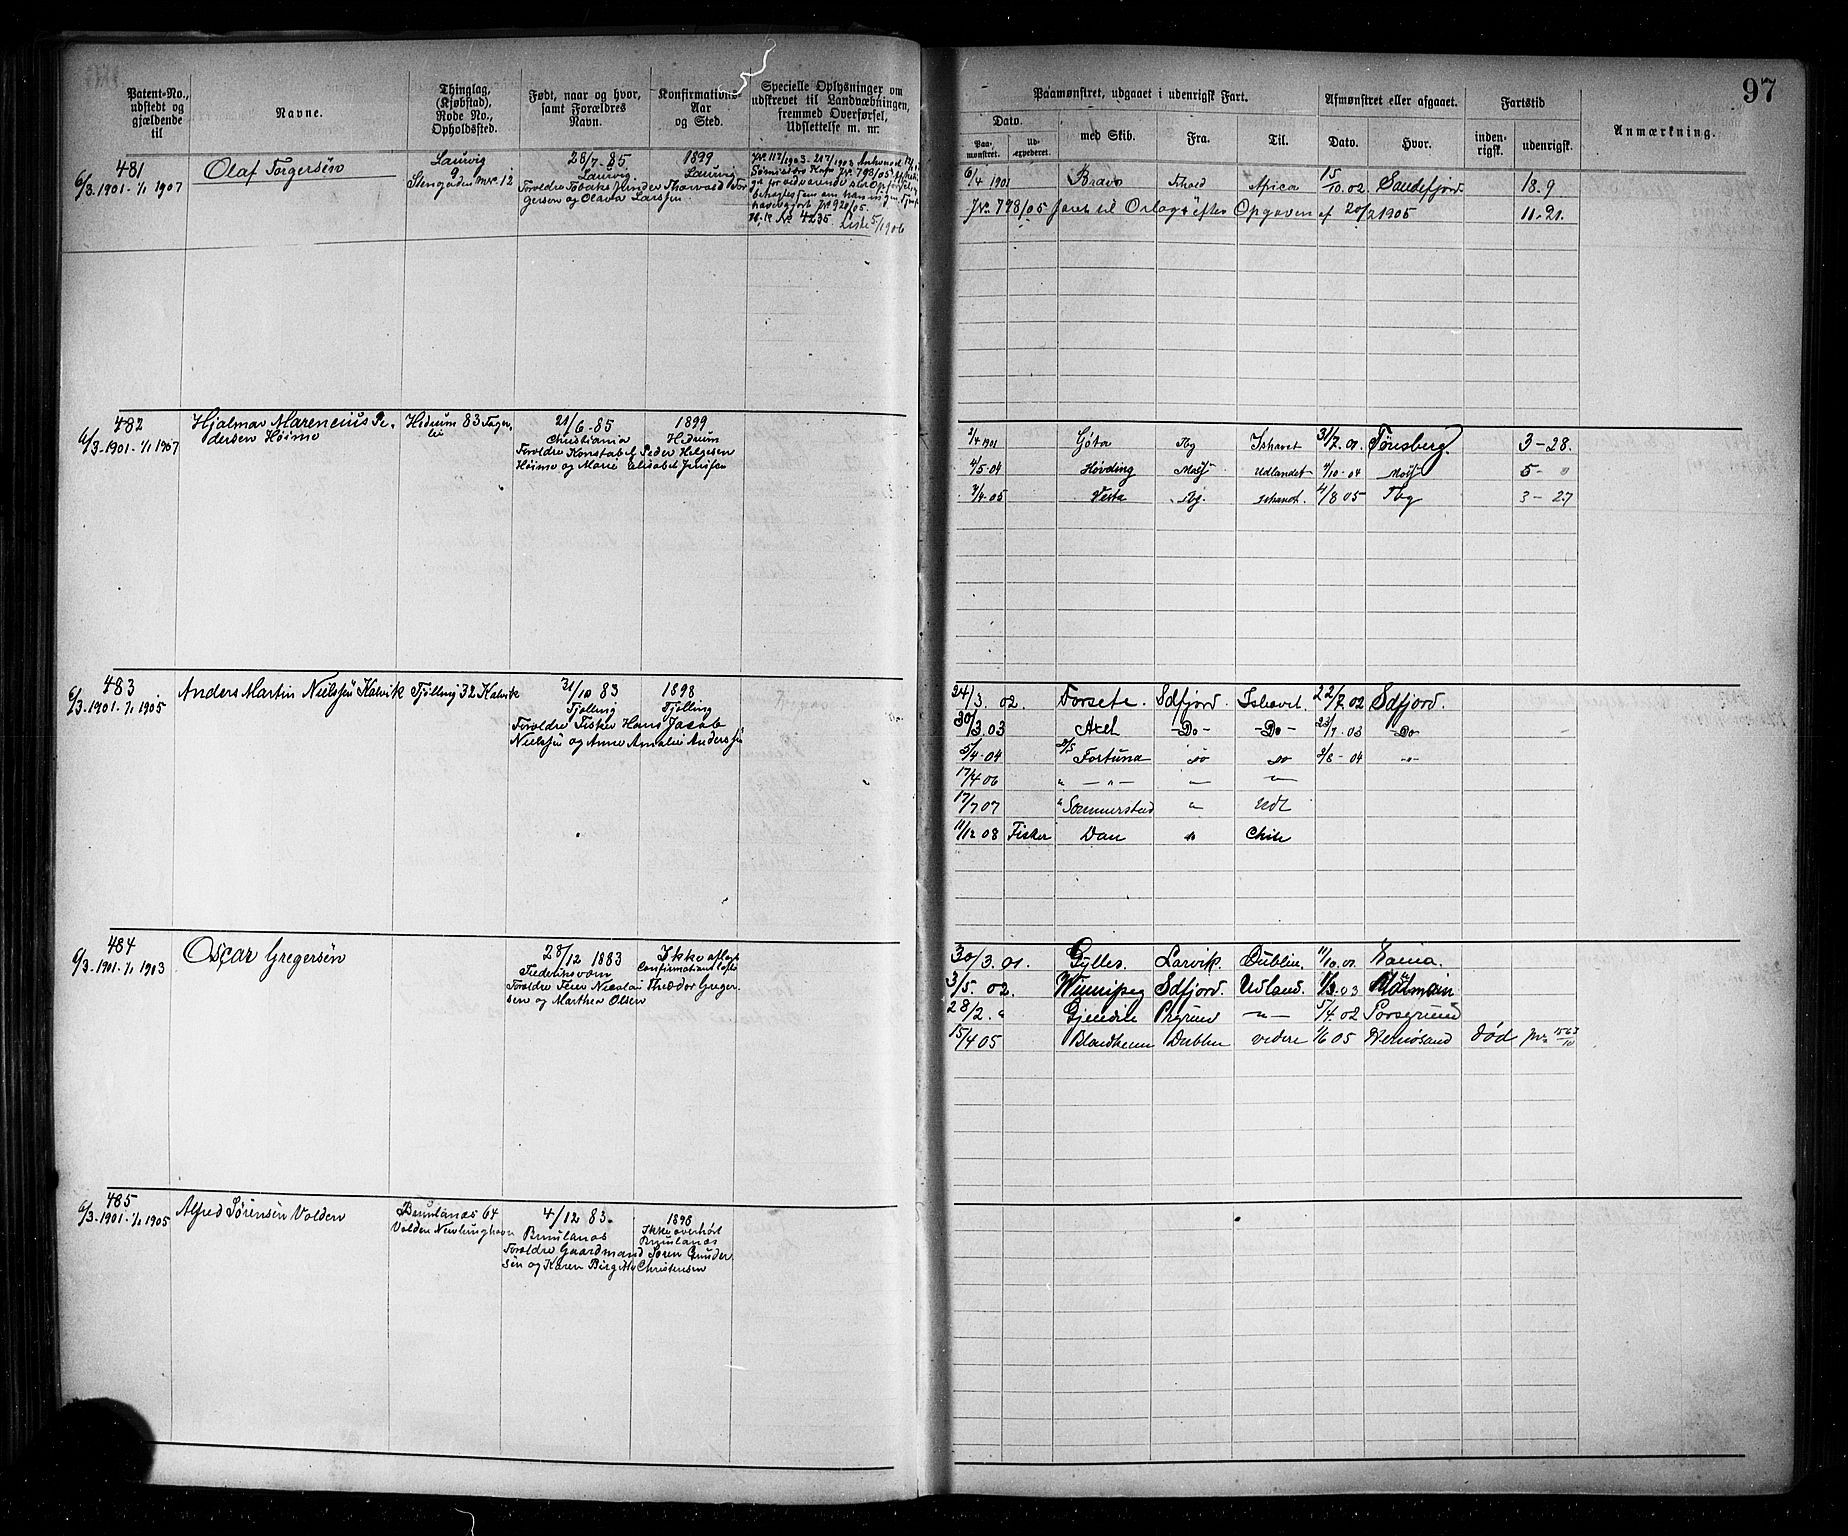 97
Patent-No., udstedt og gjældende til
Navne.
Thinglag, (Kjøbstad), Rode No., Opholdssted.
Født, naar og hvor, samt Forældres Navn.
Konfirmations-Aar og Sted.
Specielle Oplysninger om udskrevet til Landværbningen, fremmed Overførsel, Udslettelse m. m.
Paamønstret, udgaaet i udenrigsk Fart.
Afmønstret eller afgaaet.
Fartstid
Anmærkning.
Dato.
Paa-mønstret.
Ud-expederet.
med Skib.
Fra.
Til.
Dato.
Hvor.
inden-rigsk.
udenrigsk.
481
6/3.1901.-1/1 1907
Olaf Torgersen
Laurvig
9
Stengaden No 12
28/7-85
Laurvig
1899
Laurvig
No 4235. Liste 5/1906
6/4 1901 Bravo Africa 15/10.02. Sandefjord 18.9
J.No 798/05 til Orlogs efter Opgaven af 20/2 1905 11.21.
482
6/3.1901.-1/1 1907
Hjalmar Marencius Pe-
dersen Høimo
Hedrum 83 Fager-
lie
21/6-85
Christiania
Foreldre Konstabel Peder Helgesen
Høimo og Marie Elisabet Jensen
1899
Hedrum
2/4 1901 Gøta Tbg Ishavet 31/7.01. Tønsberg. 3-28.
4/5-04 Høvding Udlandet 4/10-04 5-"
2/4-05 Vesta Tbg. Ishavet. 4/8 05 Tbg 3-27
483
6/3.1901.-1/1 1905
Anders Martin Nielsen Kalvik
Tjølling 32 Kalvik
31/10 83
Tjølling
Foreldre Fisker Hans Jacob
Nielsen og Anne Amalie Andersen
1898
Tjølling
24/3. 02. Forsete. Sdfjord. Ishavet. 22/7.02 Sdfjord.
30/3.03 Axel -Do- -Do- 23/7-03 -Do
5/4-04 Fortuna do do 2/8-04 -"-
17/4 06 "-"- -"- -"-
17/7 07 " Udl
11/12 08 Fisker Dan " Chile
484
6/3.1901.-1/1 1903
Oscar Gregersen
28/12 1883
Frederiksværn
Foreldre Feier Nicolai Theodor Greger-
sen og Marthea Olsen
Ikke aflagt
Confirmationsløfte
30/3.01. Gylles. Larvik. Dublin. 11/10.01.
3/5.02. Winnipeg Sdfjord. Udland.
28/2." Gjendin Prgrund -"- 5/4.02 Porsgrund
15/4 05 Blaudheim Dublin videre 1/6 05 Hernøsand død J.No 1563/10
485
6/3.1901.-1/1 1905
Alfred Sørensen Volden
Brunlanæs 64
Volden Nevlunghavn
4/12 83.
Brunlanæs
Foreldre Gaardmand Søren Gunder-
sen og Karen Birgitte Christensen
1898
Ikke overhørt
Brunlanæs